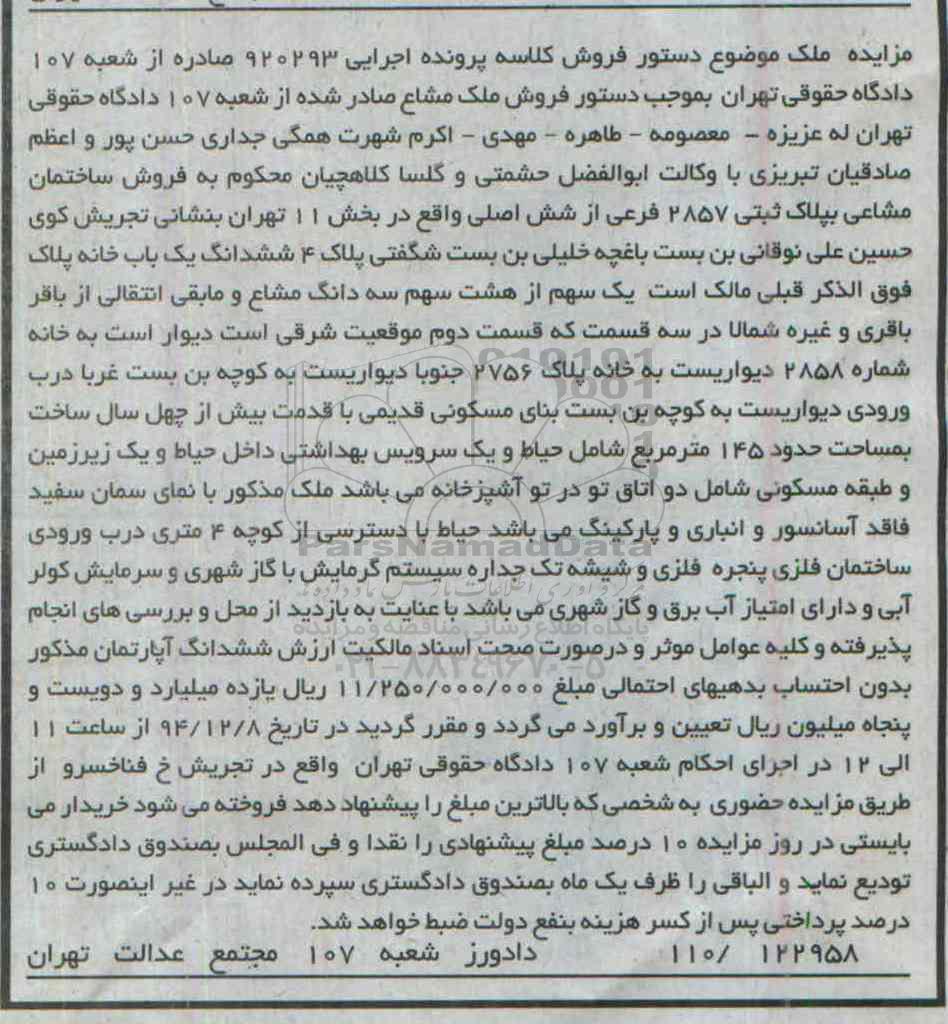 مزایده ملک موضوع دستور فروش کلاسه پرونده اجرایی ۹۲۰۲۹۳ صادره از شعبه ۱۰۷
دادگاه حقوقی تهران بموجب دستور فروش ملک مشاع صادر شده از شعبه ۱۰۷ دادگاه حقوقی
تهران له عزیزه – معصومه – طاهره – مهدی – اکرم شهرت همگی جداری حسن پور و اعظم
صادقیان تبریزی با وکالت ابوالفضل حشمتی و گلسا کلاهچیان محکوم به فروش ساختمان
مشاعی بپلاک ثبتی ۲۸۵۷ فرعی از شش اصلی واقع در بخش ۱۱ تهران بنشانی تجریش کوی
حسین علی نوقانی بن بست باغچه خلیلی بن بست شگفتی پلاک ۴ ششدانگ یک باب خانه پلاک
فوق الذکر قبلی مالک است یک سهم از هشت سهم سه دانگ مشاع و مابقی انتقالی از باقر
باقری و غیره شمالا در سه قسمت که قسمت دوم موقعیت شرقی است دیوار است به خانه
شماره ۲۸۵۸ دیواریست به خانه پلاک ۲۷۵۶ جنوبا دیواریست به کوچه بن بست غربا درب
ورودی دیواریست به کوچه بن بست بنای مسکونی قدیمی با قدمت بیش از چهل سال ساخت
بمساحت حدود ۱۴۵ مترمربع شامل حیاط و یک سرویس بهداشتی داخل حیاط و یک زیرزمین
و طبقه مسکونی شامل دو اتاق تو در تو آشپزخانه می باشد ملک مذکور با نمای سمان سفید
فاقد آسانسور و انباری و پارکینگ می باشد حیاط با دسترسی از کوچه ۴ متری درب ورودی
ParsNamadData
ساختمان فلزی پنجره فلزی و شیشه تک جداره سیستم گرمایش با گاز شهری و سرمایش کولر
آبی و دارای امتیاز آب برق و گاز شهری می باشد با عنایت به بازدید از محل و بررسی های انجام
پایگاه اطلاع رسانی مناقصه و مزایده
پذیرفته و کلیه عوامل موثر و درصورت صحت اسناد مالکیت ارزش ششدانگ آپارتمان مذکور
۰۲۱-۸۸۳۴۹۶۷۰-۵
بدون احتساب بدهیهای احتمالی مبلغ ۱۱/۲۵۰/۰۰۰/۰۰۰ ریال یازده میلیارد و دویست و
پنجاه میلیون ریال تعیین و برآورد می گردد و مقرر گردید در تاریخ ۹۴/۱۲/۸ از ساعت ۱۱
الی ۱۲ در اجرای احکام شعبه ۱۰۷ دادگاه حقوقی تهران واقع در تجریش خ فناخسرو از
طریق مزایده حضوری به شخصی که بالاترین مبلغ را پیشنهاد دهد فروخته می شود خریدار می
بایستی در روز مزایده ۱۰ درصد مبلغ پیشنهادی را نقدا و فی المجلس بصندوق دادگستری
تودیع نماید و الباقی را ظرف یک ماه بصندوق دادگستری سپرده نماید در غیر اینصورت ۱۰
درصد پرداختی پس از کسر هزینه بنفع دولت ضبط خواهد شد.
۱۲۲۹۵۸ /۱۱۰ دادورز شعبه ۱۰۷ مجتمع عدالت تهران